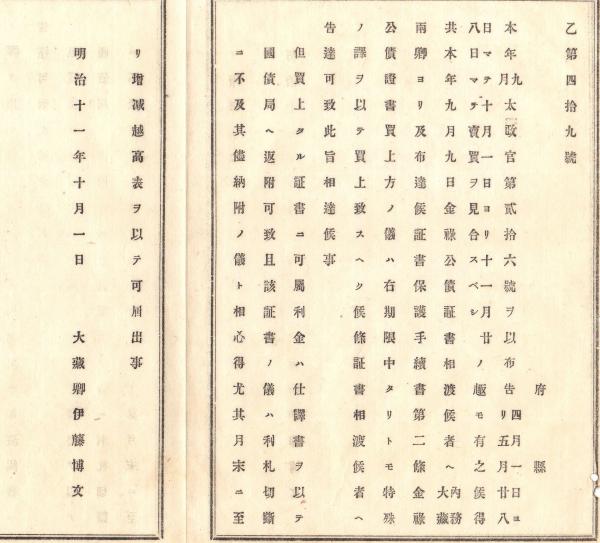 乙第四拾九號
府縣
本年九月太政官第貳拾六號ヲ以布告四月一日ヨリ五月廿八
日マテ十月一日ヨリ十一月廿
八日マテ賣買ヲ見合スベシノ趣モ有之候得
共本年九月九日金祿公債証書相渡候者ヘ內務大藏
兩卿ヨリ及布達候証書保護手續書第二條金祿
公債證書買上方ノ儀ハ右期限中タリトモ特殊
ノ譯ヲ以テ買上致スヘク候條証書相渡候者ヘ
告達可致此旨相達候事
但買上タル証書ニ可屬利金ハ仕譯書ヲ以テ
國債局ヘ返附可致且該証書ノ儀ハ利札切斷
ニ不及其儘納附ノ儀ト相心得尤其月末ニ至
リ增减越高表ヲ以テ可屆出事
明治十一年十月一日 大藏卿伊藤博文